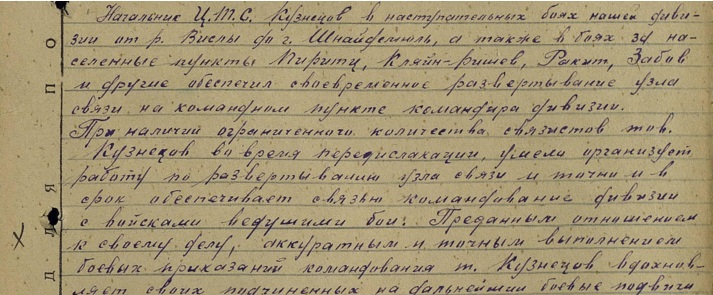 Начальник Ц.Т.С. Кузнецов в наступательных боях нашей диви-
зии от р. Вислы до г. Шнайдемюль, а также в боях за на-
селенные пункты Пиритц, Кляйн-Ришев, Ракит, Забов
и другие обеспечил своевременное развертывание узла
связи на командном пункте командира дивизии.
При наличии ограниченного количества связистов тов.
Кузнецов во время передислакации, умело организует
работу по развертыванию узла связи и точно и в
срок обеспечивает связью командование дивизии
с войсками ведущими бои. Преданным отношением
к своему делу, аккуратным и точным выполнением
боевых приказаний командования т. Кузнецов вдохнов-
ляет своих подчиненных на дальнейшии боевые подвиги
Д Л Я П О